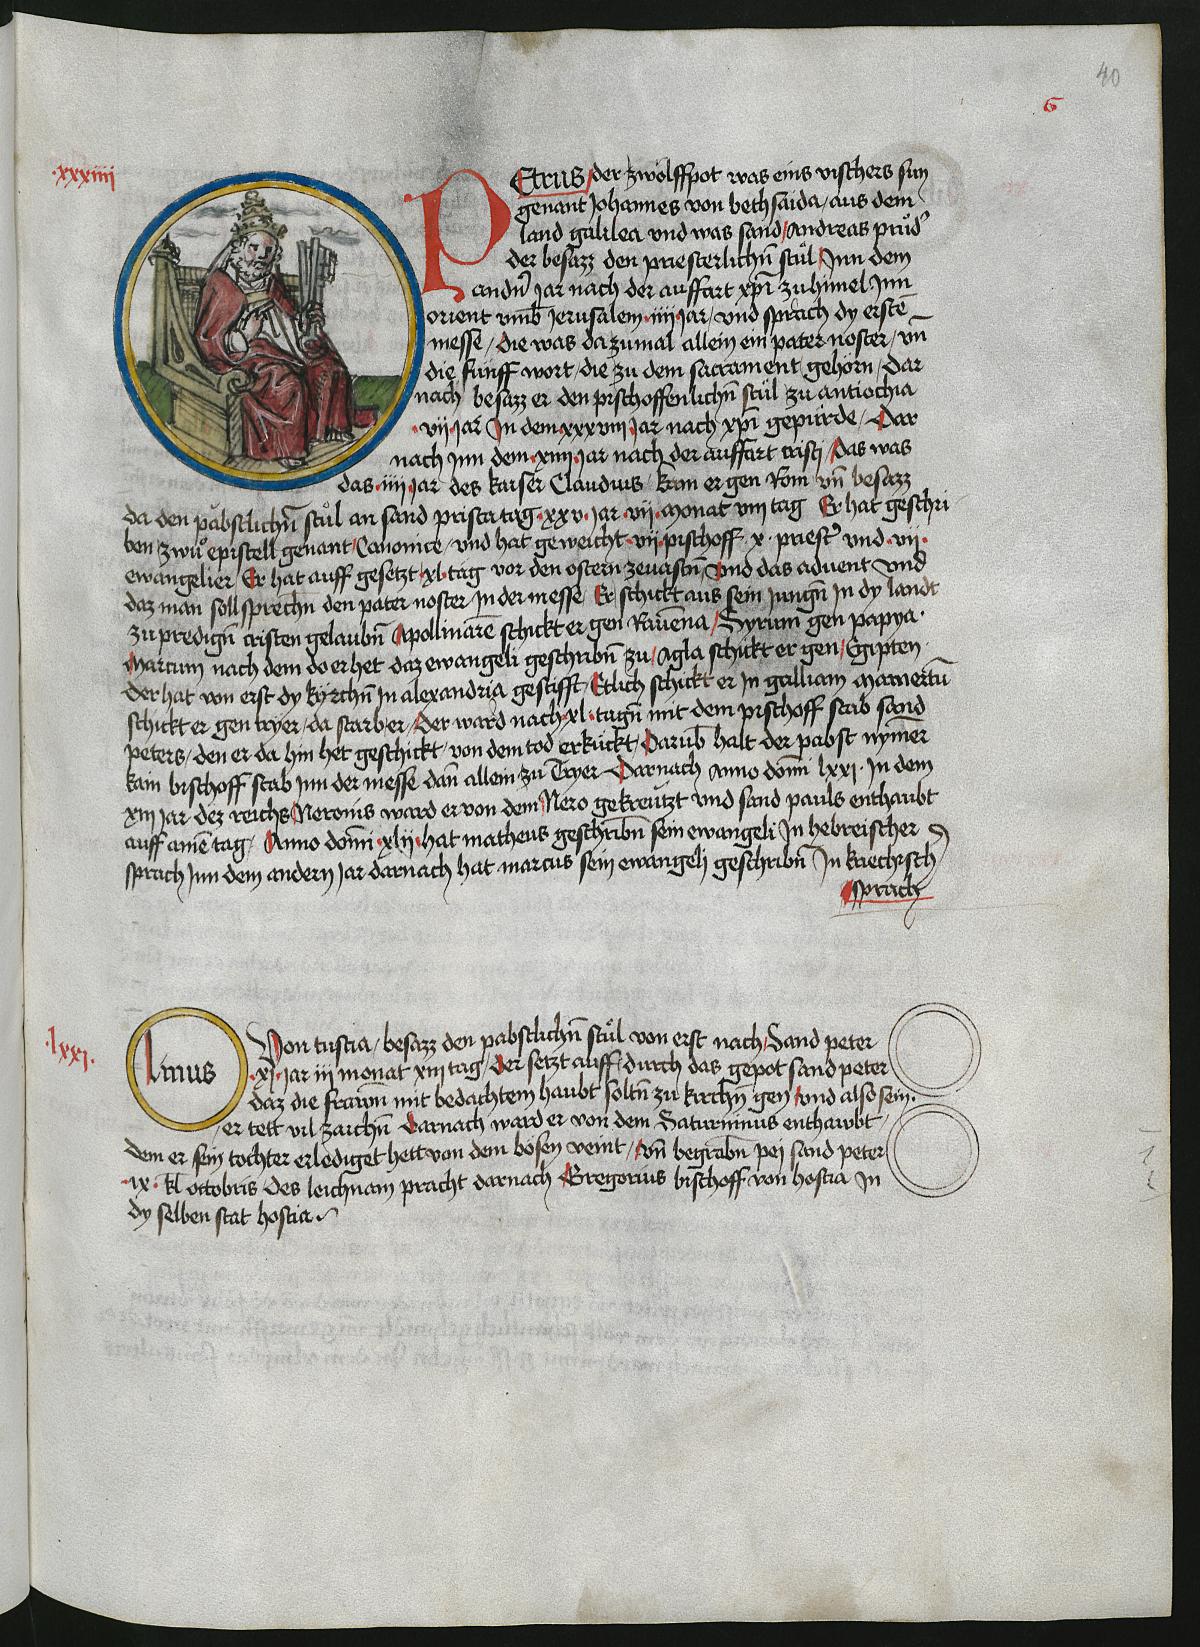 40
6
·xxxiiii
PEtrus / der zwölffpot was eins vischers sun
genant Johannes von bethsaida / aus dem
land galilea vnd was sand / Andreas prüd̾
der besazz den priesterlichn̄ stůl / Inn dem
andn̄ Jar nach der auffart xp̄i zu himel Inn
orient vmb̄ Jerusalem ·iiii· Jar / vnd sprach dy erste
messe / die was dazumal allein ein pater noster / vn̄
die fünff wort / die zu dem sacrament gehörn / Dar
nach besazz er den pischoffenlichn̄ stůl zu antiochia
·vii· Jar In dem ·xxxviii· Jar nach xp̄i gepürde / Dar
nach Inn dem ·xiiii· Jar nach der auffart cristi / Das was
das ·iiii· Jar des kaiser Claudius / kam er gen Rom vn̄ besazz
da den päbstlichn̄ stůl an sand prisca tag ·xxv· Jar ·vii· Monat viii tag Er hat geschri
ben zwů epistell genant / Canonice / vnd hat geweicht ·vii· pischoff ·x· priest̾ vnd ·vii·
ewangelier Er hat auff gesetzt ·xl· tag vor den ostern zeuastn̄ / Vnd das aduent Vnd
daz man soll sprechn̄ den pater noster In der messe Er schickt aus sein Jungn̄ In dy landt
zu predign̄ cristen gelaubn̄ Apollinare schickt er gen Rauenna / Syrum gen papya ·
Marcum nach dem do er het daz ewangeli geschribn̄ zu / Agla schickt er gen / Egipten ·
der hat von erst dy kÿrchn̄ In alexandria gestifft / Etlich schickt er In galliam Maternū
schickt er gen tryer / da starb er / Der ward nach ·xl· tagn̄ mit dem pischoff stab sand
peters / den er da hin het geschickt / von dem tod erkückt / Darūb halt der pabst nymer
kain bischoff stab Inn der messe dan̄ allein zu Tryer Darnach Anno domī lxxi · In dem
xiii Jar dez reichs Neronis ward er von dem Nero gekreützt vnd sand pauls enthaubt
auff ainē tag / Anno domī ·xlii· hat matheus geschribn̄ sein ewangeli In hebreischer
sprach Inn dem andern Jar darnach hat marcus sein ewangelj geschribn̄ In kriechisch̾
sprach
·lxxi·
Linus
Von tuscia / besazz den pabstlichn̄ stůl von erst nach / Sand peter
·xi· Jar iii monat xiii tag / Der setzt auff / durch das gepot sand peter
daz die frawn̄ mit bedachtem haubt soltn̄ zu kirchn̄ gen / vnd also sein ·
er tett vil zaichn̄ Darnach ward er von dem Saturninus enthawbt /
dem er sein tochter erlediget hett von dem bösen veint / vn̄ begrabn̄ pej sand peter
·ix· kl octobris des leichnam pracht darnach Gregorius bischoff von hostia In
dy selben stat hostia